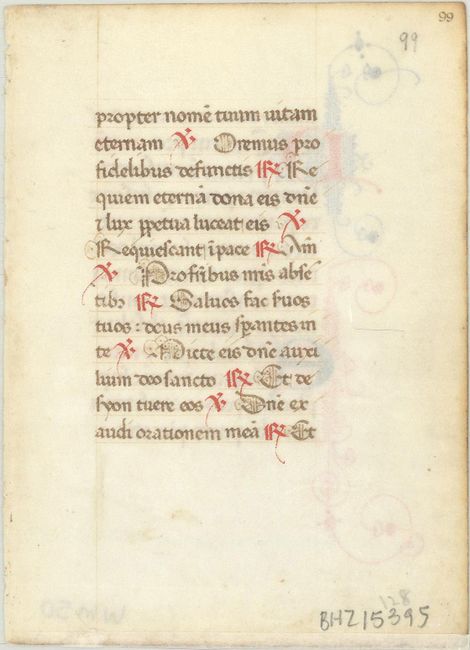 99
99
propter nomē tuum uitam
eternam ℣. Oremus pro
fidelibus defunctis ℟. Re
quiem eternā dona eis dn̄e
⁊ lux ꝑpetua luceat eis ℣.
Requiescant ī pace ℟. Am̄
℣. Pro fr̄ibus nr̄is absē
tibꝫ ℟. Saluos fac suos
tuos : deus meus sꝑantes in
te ℣. Micte eis dn̄e auxi
lium deo sancto ℟. Et de
syon tuere eos ℣. Dn̄e ex
audi orationem meā ℟. Et
128
BHZ15395